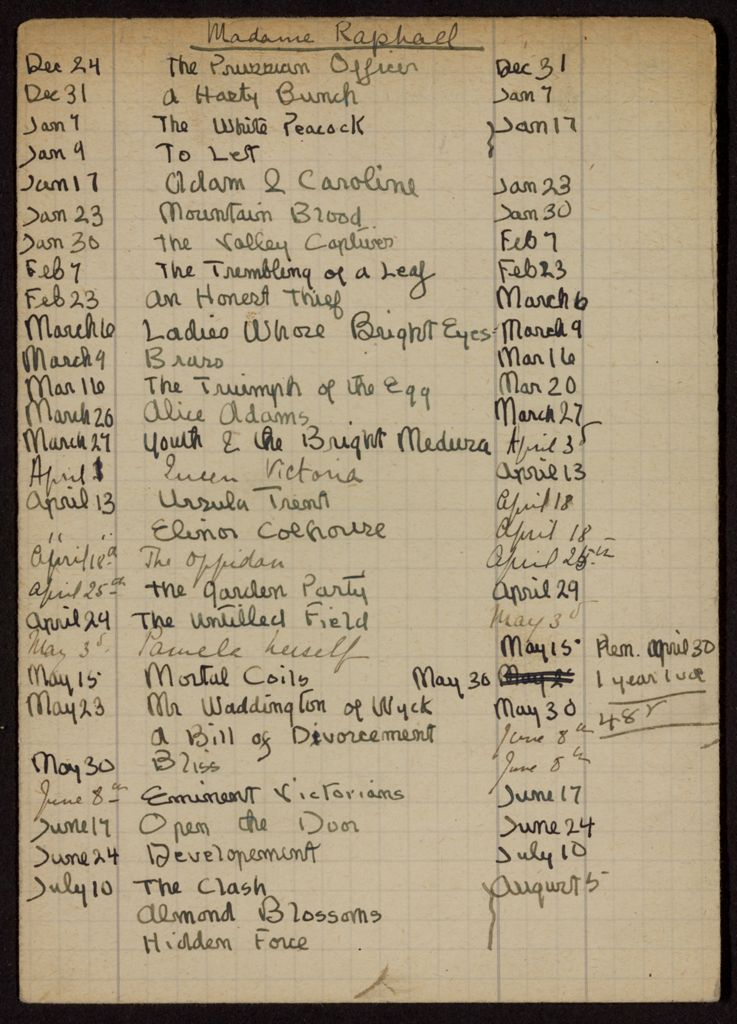 Madame Raphael
Dec 24 The Prussian Officer Dec 31
Dec 31 A Hasty Bunch Jan 7
Jan 7 The White Peacock } Jan 17
Jan 9 To Let
Jan 17 Adam & Caroline Jan 23
Jan 23 Mountain Blood Jan 30
Jan 30 The Valley Captives Feb 7
Feb 7 The Trembling of a Leaf Feb 23
Feb 23 An Honest Thief March 6
March 6 Ladies Whose Bright Eyes March 9
March 9 Mar 16
Mar 16 The Triumph of the Egg Mar 20
March 20 Alice Adams March 27
March 27 Youth & the Bright Medusa April 3d
April Queen Victoria April 13
April 13 Ursula Trent April 18
" " Elinor Colhouse April 18
April 18th The Oppidan April 25th
April 25th The Garden Party April 29
April 29 The Untilled Field May 3d
May 3d. Pamela herself May 15 Ren. April 30
May 15 Mortal Coils May 30 1 year 1 vol
May 23 Mr Waddington of Wyck May 30 48f
A Bill of Divorcement June 8th
May 30 Bliss June 8th
June 8th Eminent Victorians June 17
June 17 Open the Door June 24
June 24 Developement July 10
July 10 The Clash } August 5
Almond Blossoms
Hidden Force